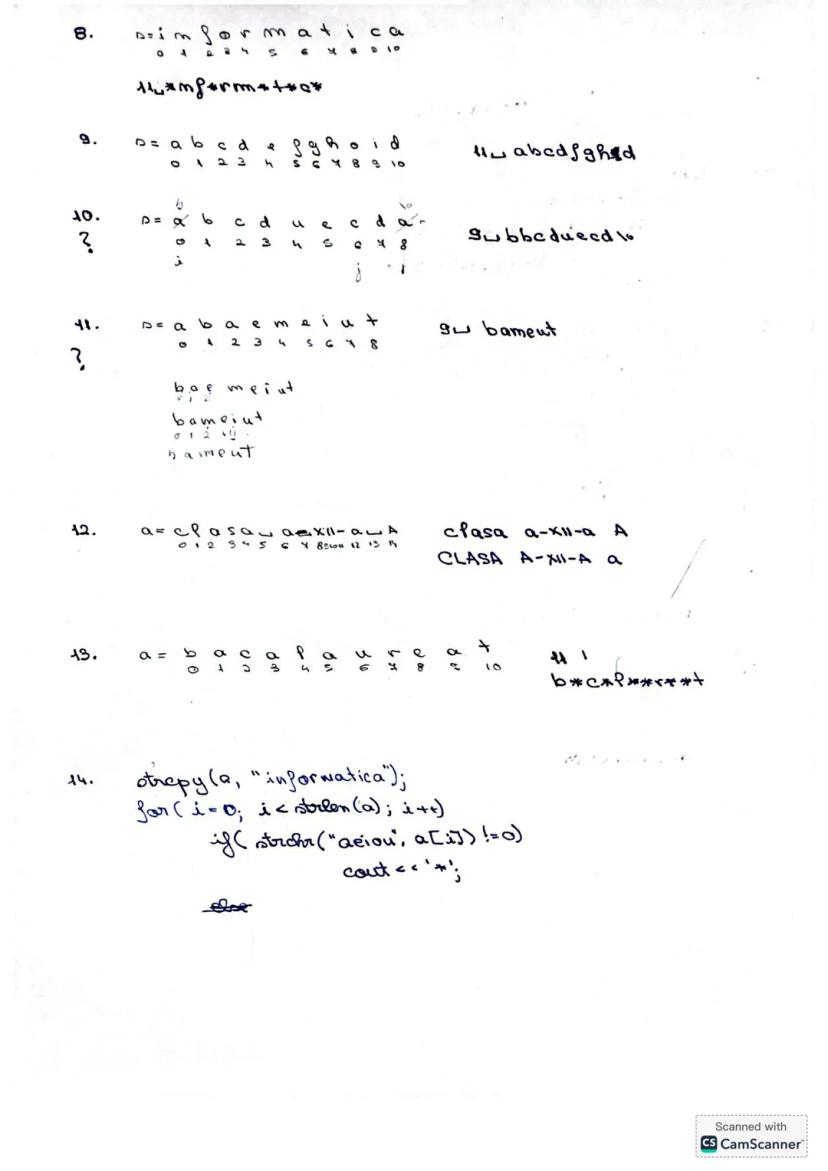 8. s= i n f o r m a t i c a
0 1 2 3 4 5 6 7 8 9 10
11␣*nf*rm*t*c*
9. s= a b c d e f g h o i d
0 1 2 3 4 5 6 7 8 9 10
11␣abcdfghid
10. s= a b c d u e c d a
b \0
0 1 2 3 4 5 6 7 8
9␣bbcduecd\0
?
i j j
11. s= a b a e m e i u t
0 1 2 3 4 5 6 7 8
9␣ bameut
?
bae meiut
0 1 2
bameiut
0 1 2
bameut
12. a= clasa␣a-XII-a␣A
0 1 2 3 4 5 6 7 8 9 10 11 12 13 14
clasa a-XII-a A
CLASA A-XII-A a
13. a= b a c a l a u r e a t
0 1 2 3 4 5 6 7 8 9 10
11
b*c*l**r**t
14. strcpy(a, "informatica");
for( i=0; i<strlen(a); i++)
if( strchr("aeiou", a[i]) !=0)
cout<<'*';
else
Scanned with
CS CamScanner